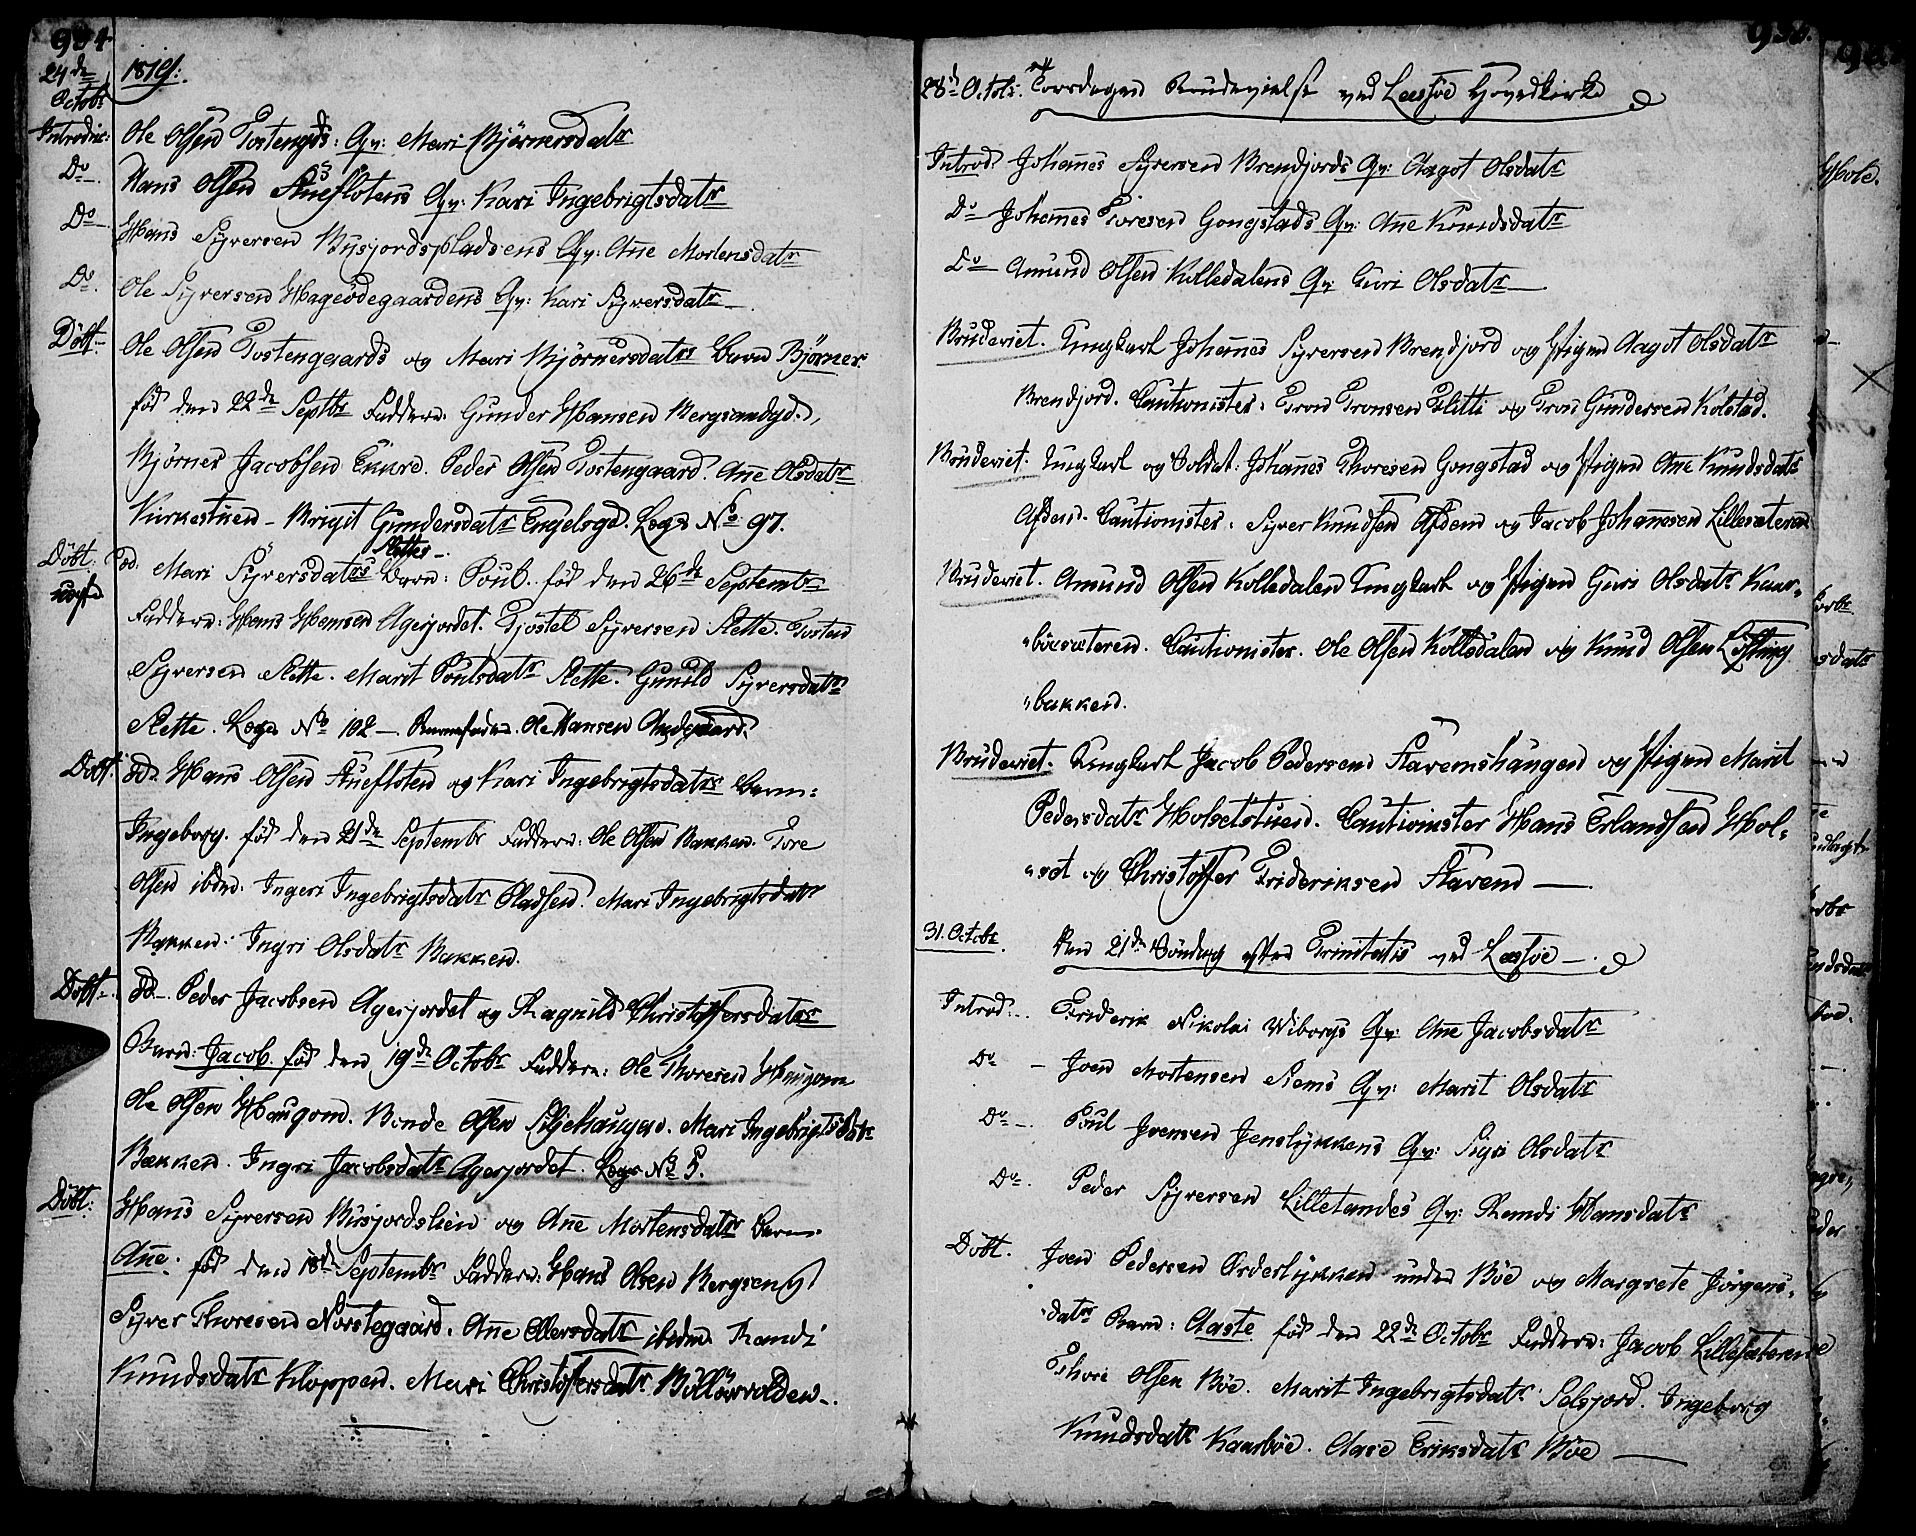 934
24de Octobr 1819:
Introduc: Ole Olsen Tostengds: Qv: Mari Bjørnersdatr
Do Hans Olsen Stueflotens Qv: Kari Ingebrigtsdatr
Do Hans Syversen Busjordspladsens Qv: Añe Mortensdatr
Do. Ole Syversen Hageødegaardens Qv: Kari Syversdatr
Döbt. Ole Olsen Tostengaards og Mari Bjørnersdatrs Barn Bjørner.
fød den 22de Septbr Faddere: Gunder Hansen
Bjørner Jacobsen Enkre. Peder Olsen Tostengaard. Añe Olsdatr
Kirkestuen - Brigit Gundersdatr Engelsgd. Legd No 97.
Slette
Döbt. Mari Syversdatrs Barn: Poul. fød den 26de Septembr
Faddere: Hans Hansen Agerjordet. Gjøstel Syversen Slette. Tosten
Syversen Slette. Marit Poulsdatr Slette. Gunild Syversdatr
Slette. Legd No 102 - Barnefader. Ole Hansen
Döbt. Hans Olsen Stuefloten og Kari Ingebrigtsdatrs Barn:
Ingeborg. fød den 21de Septembr Faddere: Ole Olsen Bakken. Tore
Olsen ibdm: Ingeri Ingebrigtsdatr Pladsen. Mari Ingebrigtsdatr
Bakken: Ingri Olsdatr Bakken.
Döbt. Peder Jacobsen Agerjordet og Ragnild Christoffersdatrs
Barn: Jacob fød den 19de Octobr Faddere: Ole Thoresen Haugom
Ole Olsen Haugom. Bonde Olsen Liljehaugen. Mari Ingebrigtsdatr
Bakken. Ingri Jacobsdatr Agerjordet. Legd No 5.
Döbt: Hans Syversen Busjordslien og Añe Mortensdatr Barn.
Añe. fød den 18de Septembr Faddere: Hans Olsen
Syver Thoresen Norstegaard. Añe Ollersdatr ibdm Randi
Knudsdatr Kloppen. Mari Christoffersdatr
28de Octobr. Torsdagen Brudevielse ved Lessøe Hovedkirke
Introd Johañes Syversen Brendjords Qv: Aagot Olsdatr
Do Johañes Toresen Gongstads Qv: Añe Knudsdatr
Do Amund Olsen Kolledalens Qv: Guri Olsdatr
Brudeviet. Ungkarl Johañes Syversen Brendjord og Pigen Aagot Olsdatr
Brendjord. Cautionister: Tron Tronsen Flitti og Tron Gundersen Kolstad.
Brudeviet. Ungkarl og Soldat: Johañes Thoresen Gongstad og Pigen Añe Knudsdatr
Afdem. Cautionister: Syver Knudsen Afdem og Jacob Johañesen Lillesæteren
Brudeviet. Amund Olsen Kolledalen Ungkarl og Pigen Guri Olsdatr Kaar-
bøesæteren. Cautionister. Ole Olsen Kolledalen og Knud Olsen
bakken.
Brudeviet. Ungkarl Jacob Pedersen Stavemshaugen og Pigen Marit
Pedersdatr Holsetstuen. Cautionister Hans Erlandsen Hol-
set og Christoffer Frideriksen Stavem
31. Octobr. Den 21de Søndag efter Trinitatis ved Lessøe
Introd: Friderik Nikolai Wiborgs Qv: Añe Jacobsdatr
Do - Joen Mortensen Nems Qv: Marit Olsdatr
Do - Poul Joensen Jenslykkens Qv: Sigri Olsdatr
Do. Peder Syversen Lilletandes Qv: Randi Hansdatr
Döbt. Joen Pedersen Orderlykken under Bøe og Margrete Jørgens-
datrs Barn: Aaste fød den 22de Octobr Faddere: Jacob Lillesæterene
Thore Olsen Bøe. Marit Ingebrigtsdatr Selsjord. Ingeborg
Knudsdatr Kaarbøe. Aase Eriksdatr Bøe